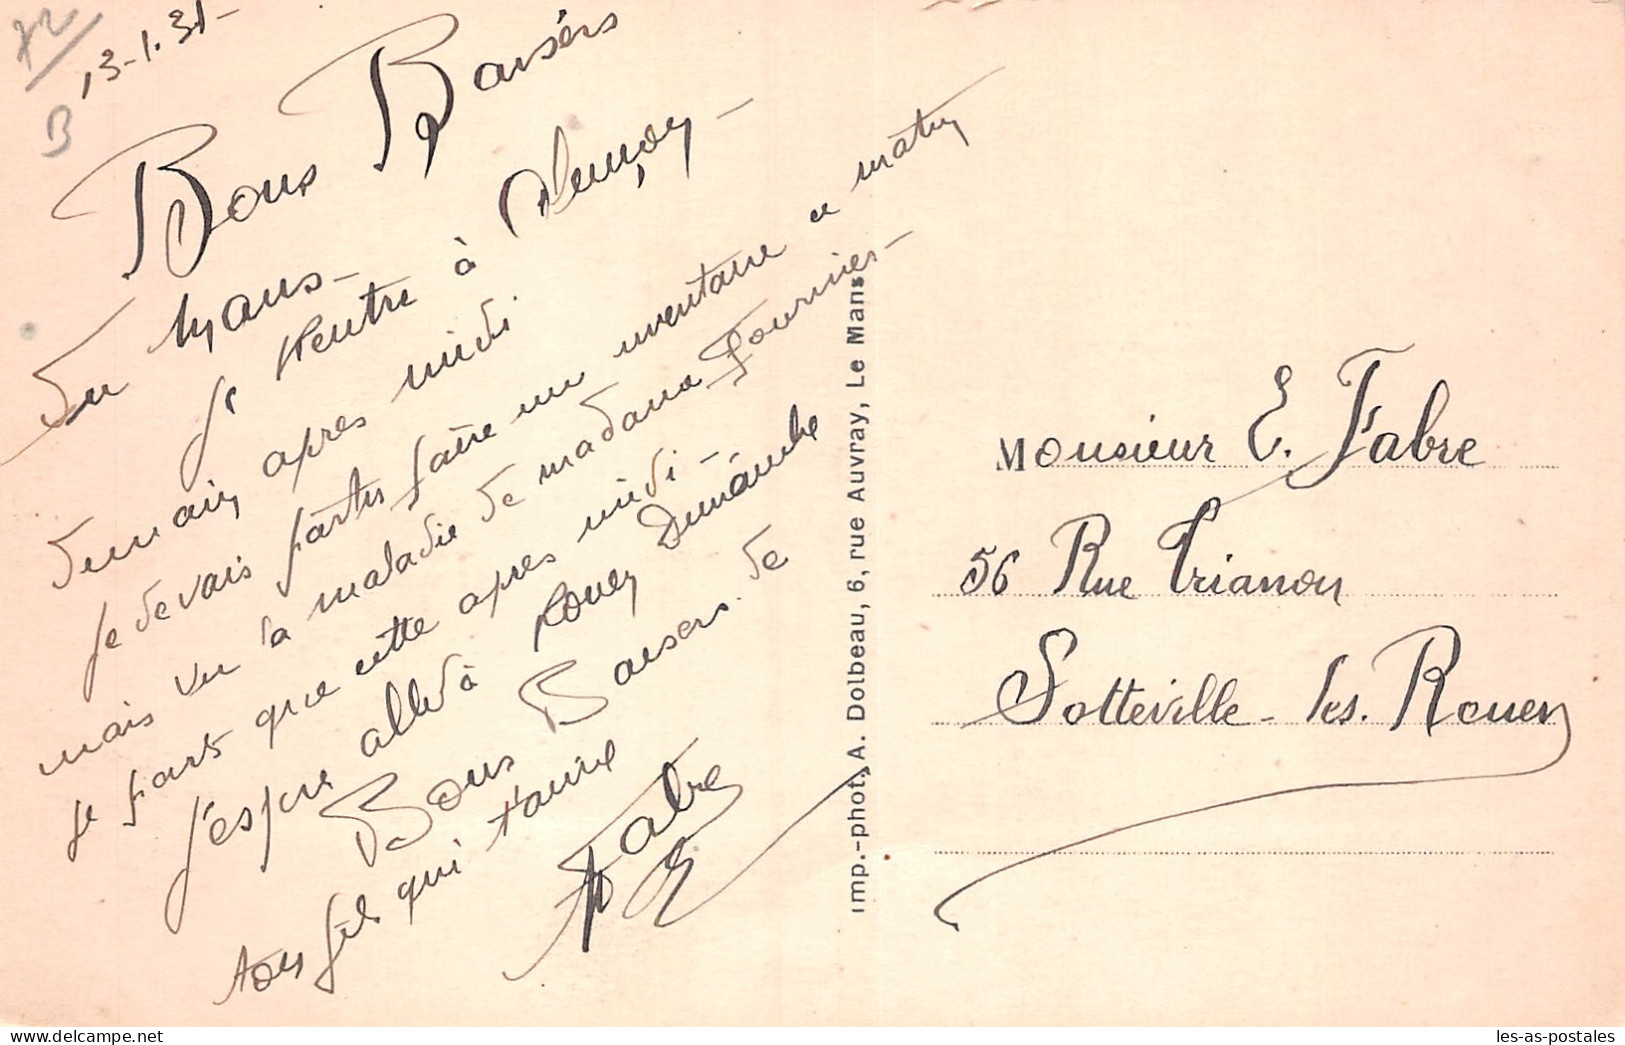 72
B
13-1.31-
Bons Baisérs
du Mans-
Je Rentre à Alençon-
demain apres midi
Je devais partir faire un inventaire ce matin
mais vu la maladie de madame Fournier-
Je parts que cette apres midi-
J'espere alle à Rouen Dimanche
Bons Baisers de
ton fils qui t'aime
Fabre
E
Imp.-phot. A. Dolbeau, 6, rue Auvray, Le Mans
Monsieur E. Fabre
56 Rue Trianon
Sotteville-les-Rouen
les-as-postales